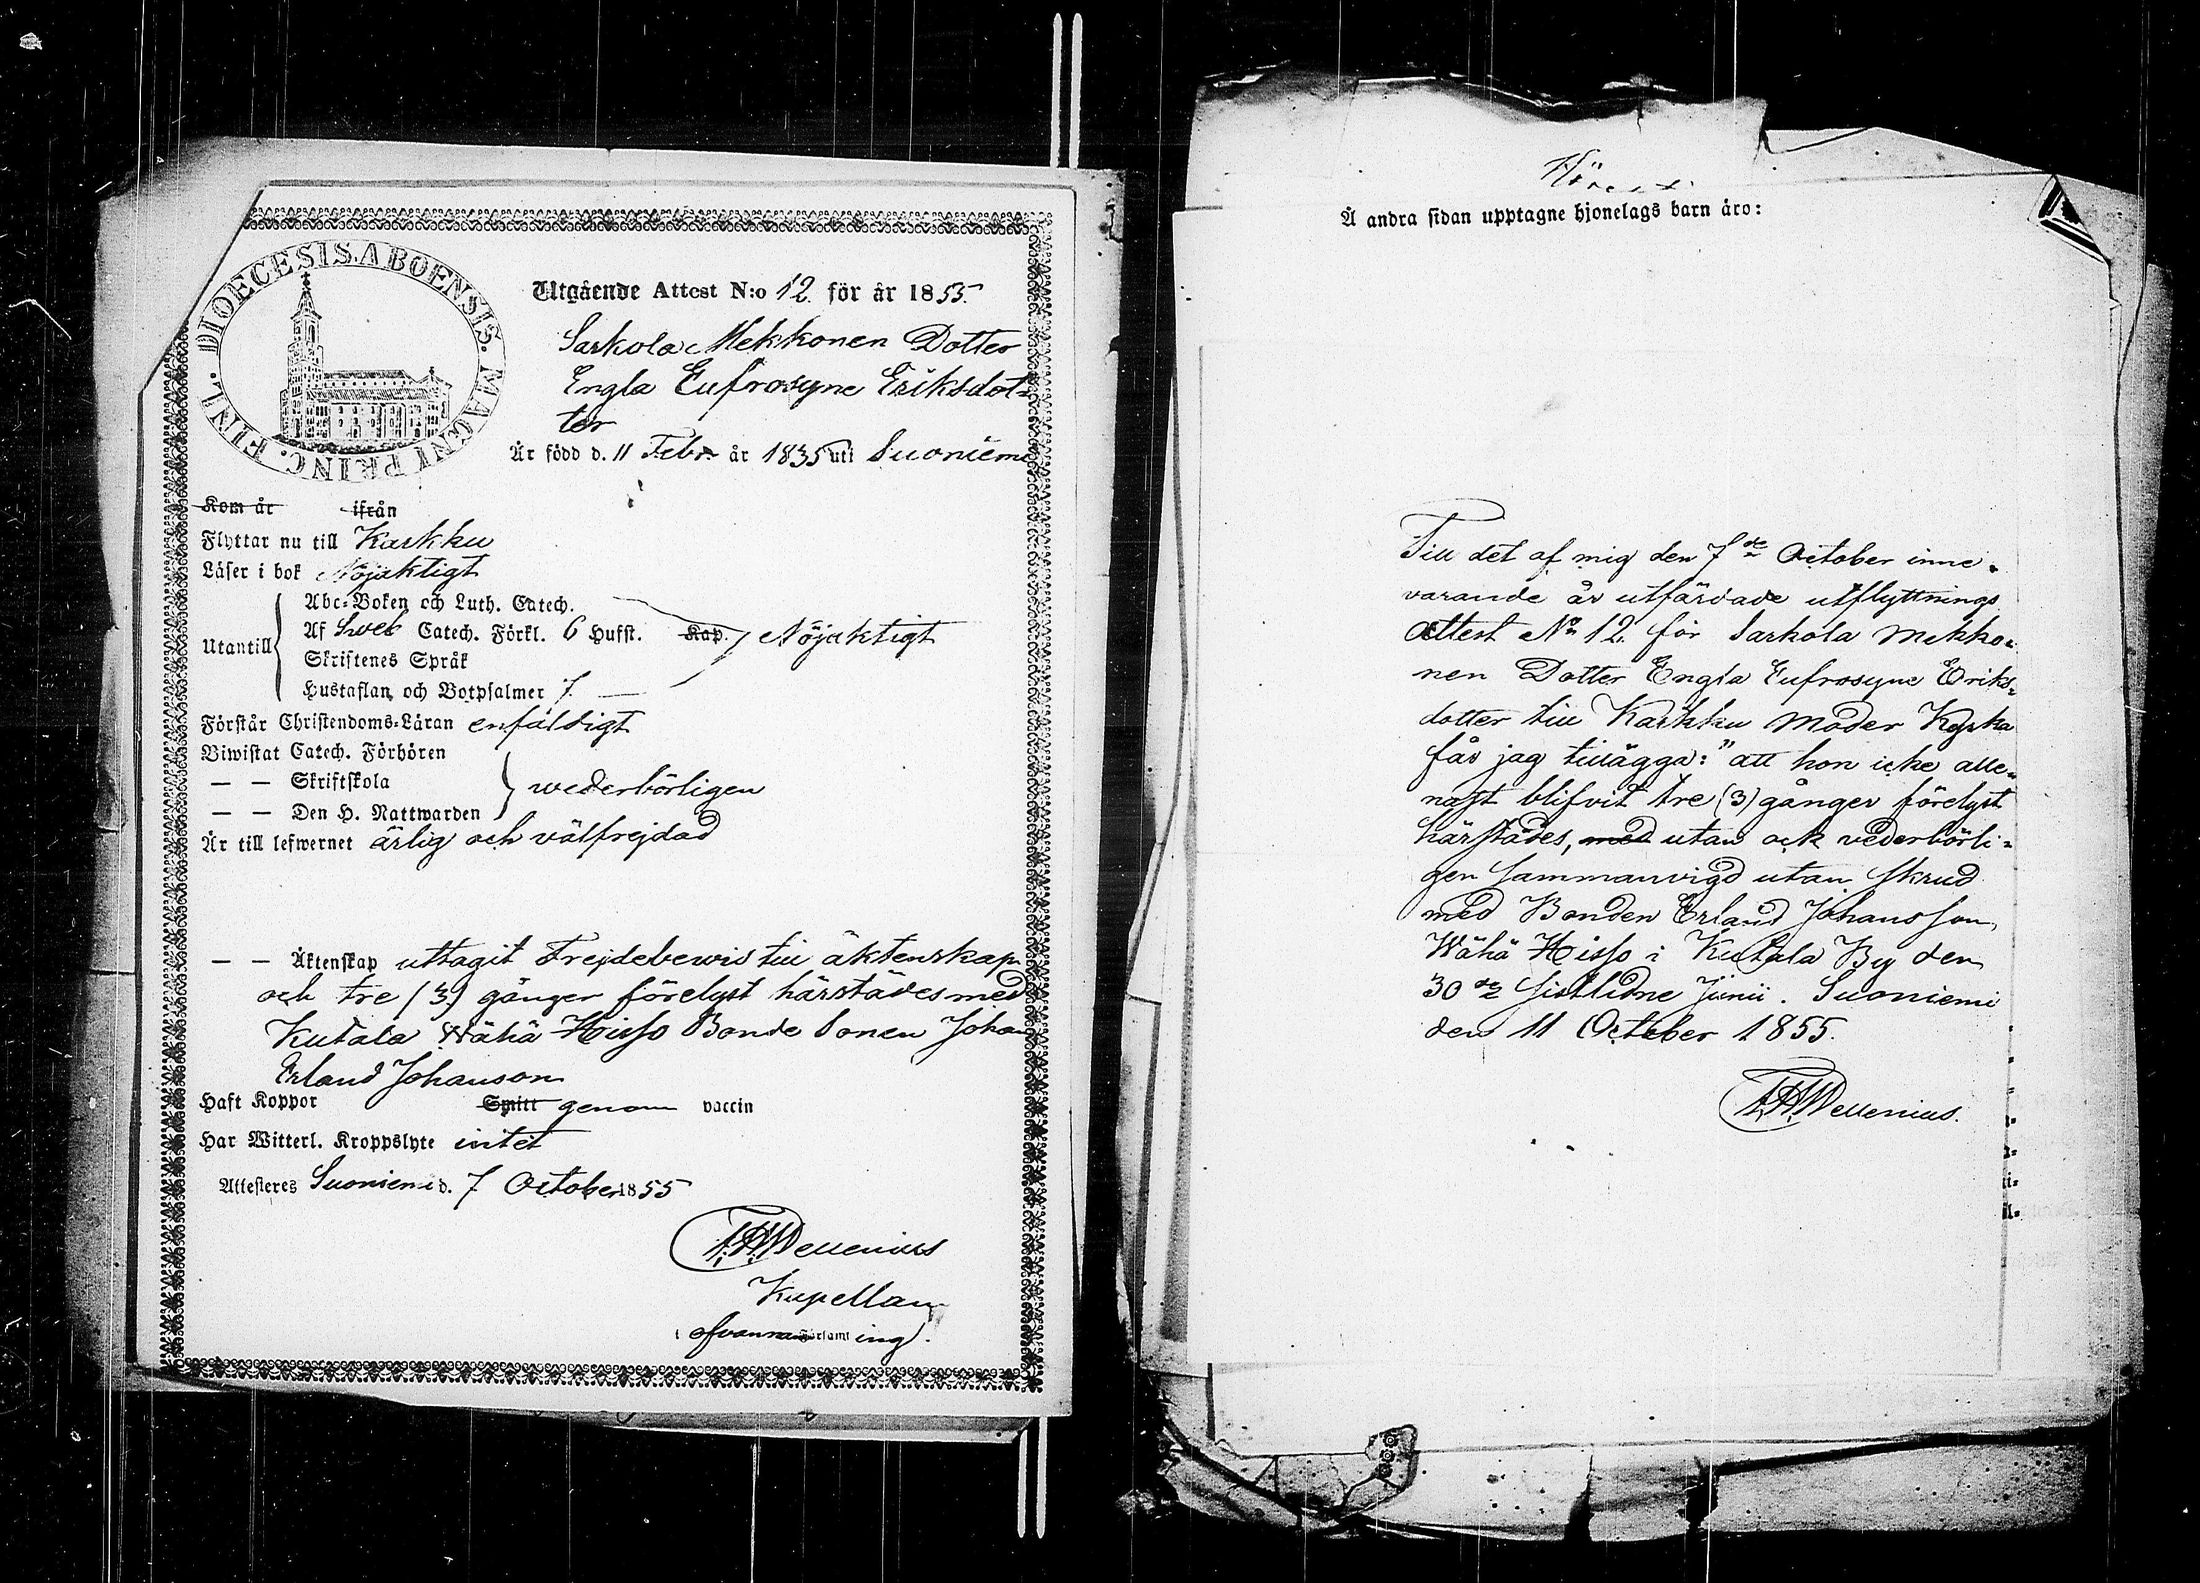 DIOECESIS. ABOENSIS. MAGNI PRINC. FINL.
Utgående Attest N:o 12. för år 1855.
Sarkola Mekkonen Dotter
Engla Eufrosyne Eriksdot-
ter
Är född d. 11 Febr. år 1835 uti Suoniemi
Kom år ifrån
Flyttar nu till Karkku
Läser i bok Nöjaktigt
Utantill
Abc-Boken och Luth. Catech.
Af Sveb Catech. Förkl. 6 Hufst. Kap. Nöjaktigt
Skriftenes Språk
Hustaflan och Botpsalmer 7.
Förstår Christendoms-Läran enfaldigt
Biwistat Catech. Förhören
— — Skriftskola wederbörligen
— — Den H. Nattwarden
Är till lefwernet ärlig och välfrejdad
— — Äktenskap uttagit Frejdebewis till äktenskap
och tre (3) gånger förelyst härstädes med
Kutala Wähä Hisso Bonde Sonen Johan
Erland Johanson
Haft Koppor Spitt genom vaccin
Har Witterl. Kroppslyte intet
Attesteres Suoniemi d. 7 October 1855
Wellenius
Kapellan
i ofvannam Församling.
Å andra sidan upptagne hjonelags barn äro:
Till det af mig den 7de October inne-
varande år utfärdade utflyttnings
Attest No 12. för Sarkola Mekko-
nen Dotter Engla Eufrosyne Eriks-
dotter till Karkku Moder Kyrka
får jag tillägga: "att hon icke alle-
nast blifvit tre (3) gånger förelyst
härstädes, med utan ock vederbörli-
gen Sammanvigd utan Skrud
med Bonden Erland Johansson
Wähä Hisso i Kutala By den
30de Sistlidne Junii. Suoniemi
den 11 October 1855.
Wellenius.